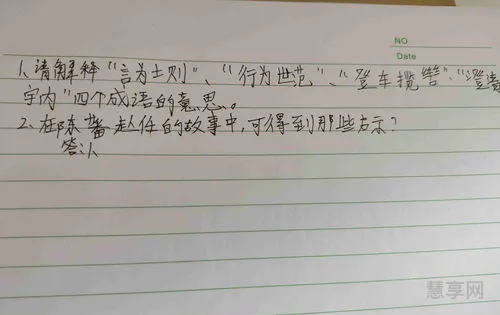 NO
Date
1、请解释“言为士则”、“行为世范”、“登车揽辔”、“澄清
宇内”四个成语的意思。
2、在陈蕃赴任的故事中,可得到那些启示?
答:
慧享网